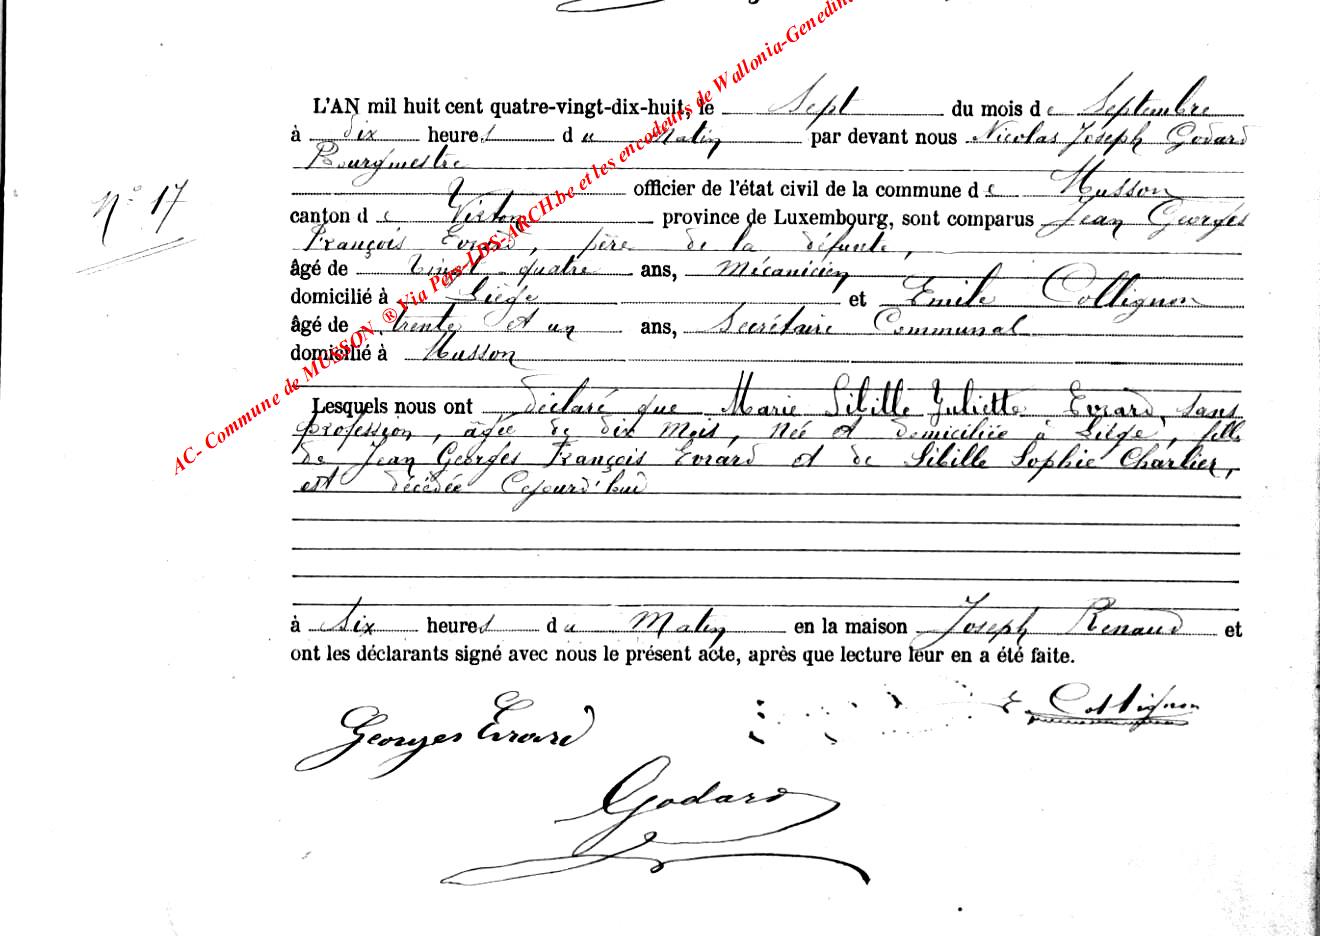 L'AN mil huit cent quatre-vingt-dix-huit, le Sept du mois de Septembre
à dix heures du Matin par devant nous Nicolas Joseph Godard
Bourgmestre
officier de l'état civil de la commune de Musson
N° 17
canton de Virton province de Luxembourg, sont comparus Jean Georges
François Evrard, père de la défunte,
âgé de Vingt-quatre ans, Mécanicien
domicilié à Liége et Emile Collignon
âgé de trente et un ans, Secrétaire Communal
domicilié à Musson
Lesquels nous ont déclaré que Marie Sibille Juliette Evrard, sans
profession, âgée de dix mois, née et domiciliée à Liége, fille
de Jean Georges François Evrard et de Sibille Sophie Charlier,
est décédée Cejourd'hui
à Six heures du Matin en la maison Joseph Renaud et
ont les déclarants signé avec nous le présent acte, après que lecture leur en a été faite.
Georges Evrard
E Collignon
Godard
AC- Commune de MUSSON ® Via Pers-LDS-ARCH.be et les encodeurs de Wallonia-Genedin